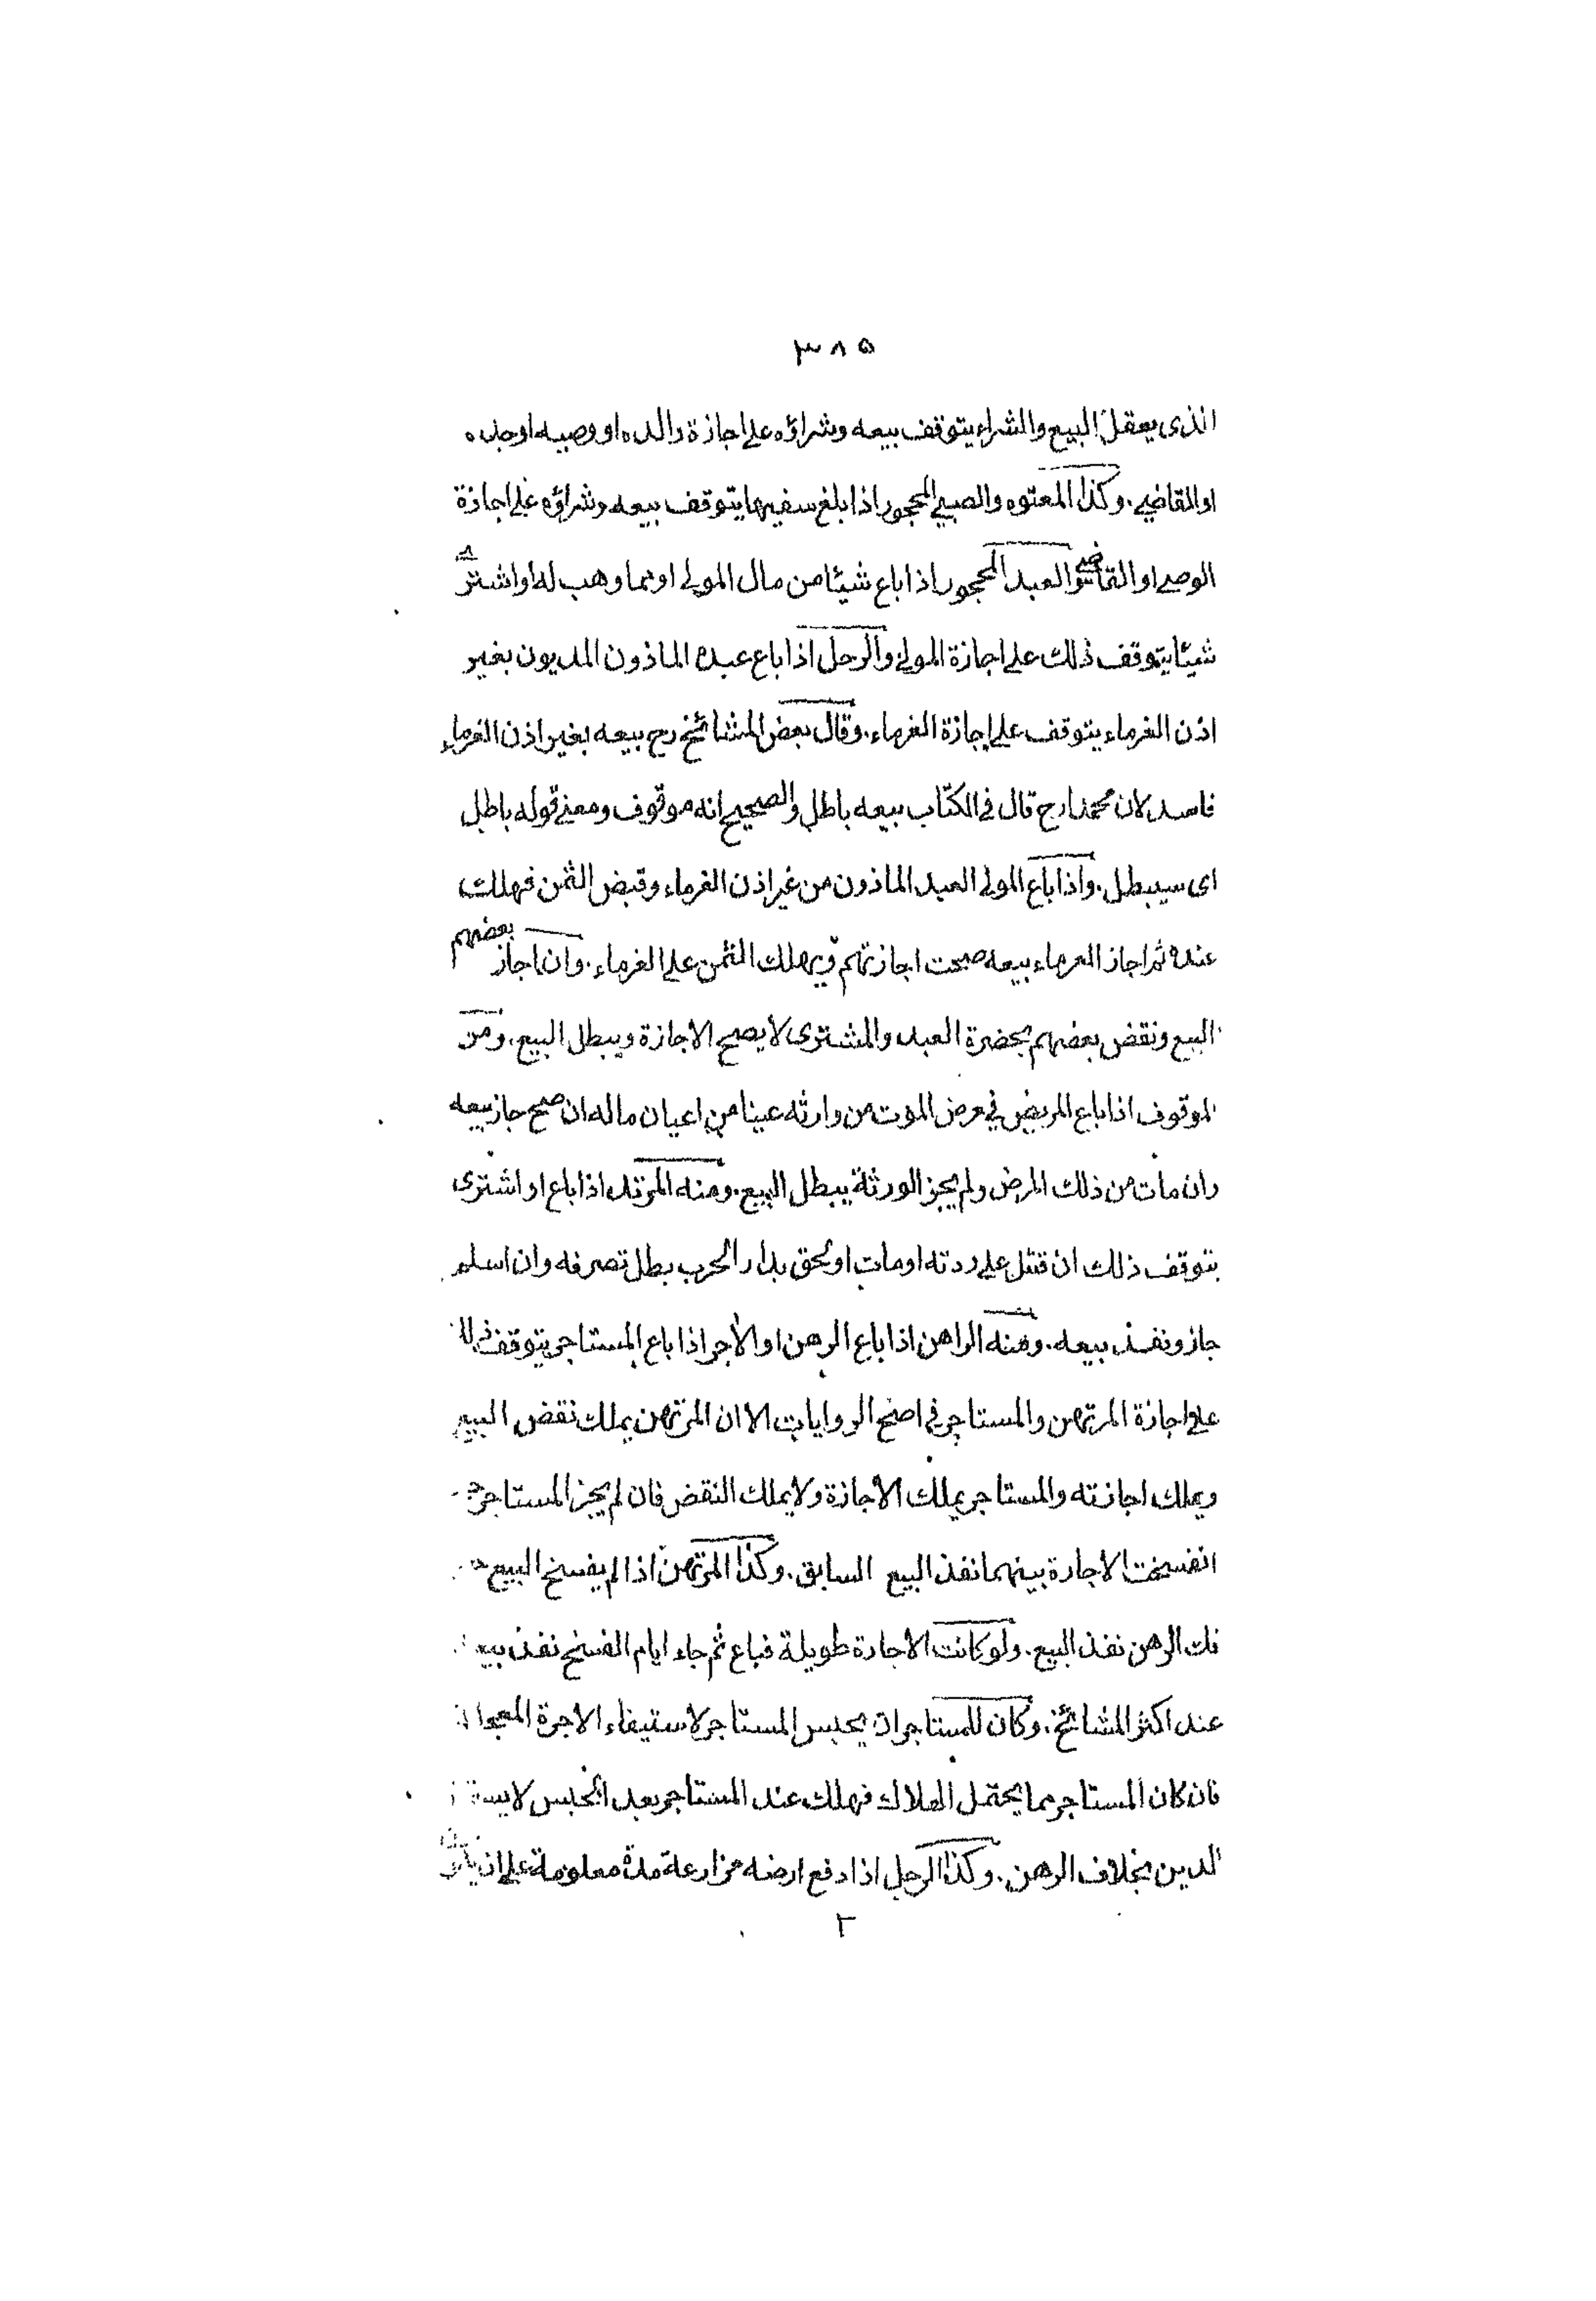 ٣٨٥
الذى يعقل البيع والشراء يتوقف بيعه وشراؤه على اجازة والده او وصيه او جده
او القاضى. وكذا المعتوه والصبى المحجور اذا بلغ سفيها يتوقف بيعه وشراؤه على اجازة
الوصى او القاضى والعبد المحجور اذا باع شيئا من مال المولى او مما وهب له او اشترى
شيئا يتوقف ذلك على اجازة المولى والرجل اذا باع عبده الماذون المديون بغير
اذن الغرماء يتوقف على اجازة الغرماء. وقال بعض المشائخ رح بيعه بغير اذن الغرماء
فاسد لان محمدا رح قال فى الكتاب بيعه باطل والصحيح انه موقوف ومعنى قوله باطل
اى سيبطل. واذا باع المولى العبد الماذون من غير اذن الغرماء وقبض الثمن فهلك
عنده ثم اجاز الغرماء بيعه صحت اجازتهم ويهلك الثمن على الغرماء. وان اجاز بعضهم
البيع ونقض بعضهم بحضرة العبد والمشترى لا يصح الاجازة ويبطل البيع. ومن
الموقوف اذا باع المريض فى مرض الموت من وارثه عينا من اعيان ماله ان صح جاز بيعه
وان مات من ذلك المرض ولم يجز الورثة يبطل البيع. ومنه المرتد اذا باع او اشترى
يتوقف ذلك ان قتل على ردته او مات او لحق بدار الحرب بطل تصرفه وان اسلم
جاز ونفذ بيعه. ومنه الراهن اذا باع الرهن او الآجر اذا باع المستاجر يتوقف
على اجازة المرتهن والمستاجر فى اصح الروايات الا ان المرتهن يملك نقض البيع
ويملك اجازته والمستاجر يملك الاجازة ولا يملك النقض فان لم يجز المستاجر
انفسخت الاجارة بينهما نفذ البيع السابق. وكذا المرتهن اذا لم يفسخ البيع
فك الرهن نفذ البيع. ولو كانت الاجارة طويلة فباع ثم جاء ايام الفسخ نفذ
عند اكثر المشائخ. وكان للمستاجر ان يحبس المستاجر لاستيفاء الاجرة
فان كان المستاجر مما يحتمل الهلاك فهلك عند المستاجر بعد الحبس لا
الدين بخلاف الرهن. وكذا الرجل اذا دفع ارضه مزارعة مدة معلومة على ان
٢